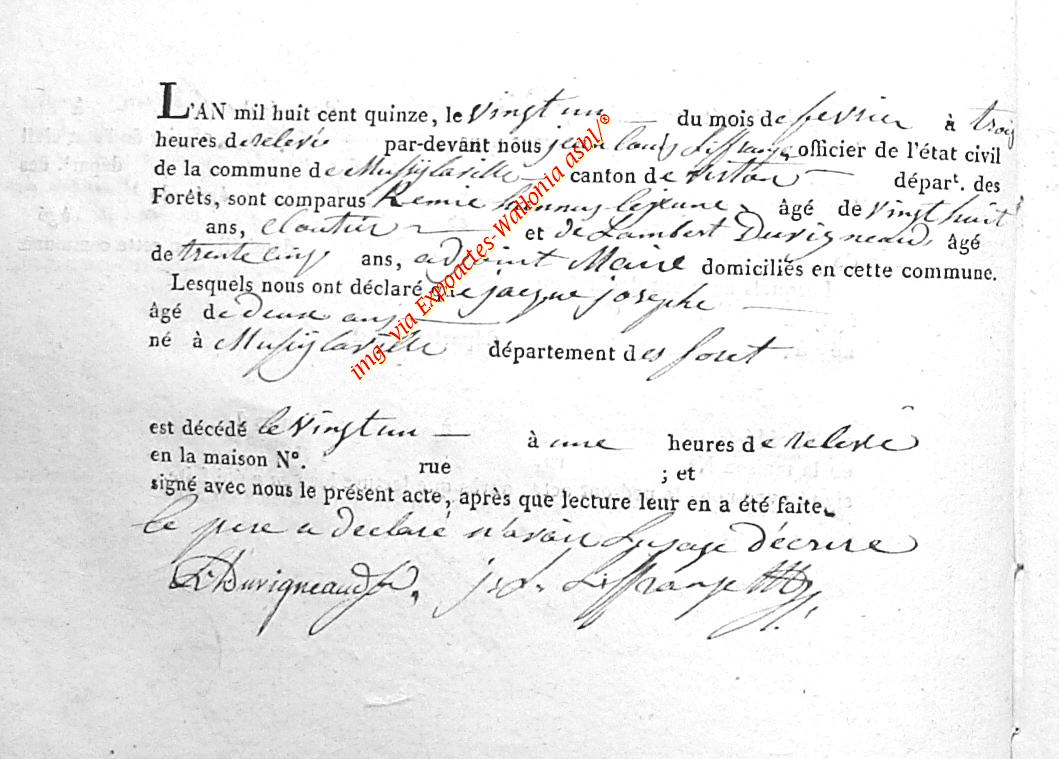 L'AN mil huit cent quinze, le vingt un du mois de fevrier à trois
heures de relevé par-devant nous jean louis Liffrange, officier de l'état civil
de la commune de Mussylaville canton de virton départ. des
Forêts, sont comparus Remie lejeune âgé de vingt huit
ans, cloutier et de Lambert Duvigneaud âgé
de trente cinq ans, adjoint Maire domiciliés en cette commune.
Lesquels nous ont déclaré que jacque josephe
âgé de deux ans
né à Mussylaville département des foret
est décédé le vingt un à une heures de relevé
en la maison N°. rue ; et
signé avec nous le présent acte, après que lecture leur en a été faite.
le pere a declaré n'avoir l'usage d'écrire
L. Duvigneaud j. L. Liffrange
img- via Expoactes-Wallonia asbl/®